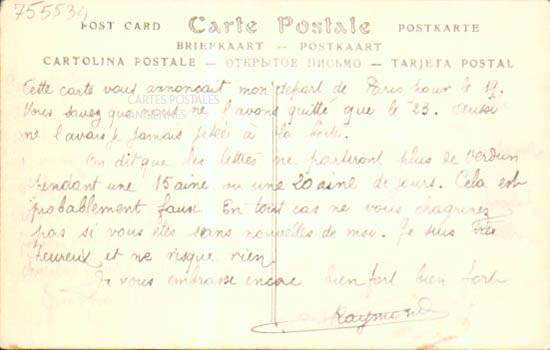 755534
POST CARD Carte Postale POSTKARTE
BRIEFKAART — POSTKAART
CARTOLINA POSTALE — ОТКРЫТОЕ ПИСЬМО — TARJETA POSTAL
Cette carte vous annoncait mon depart de Paris pour le 19.
Vous savez que nous ne l'avons quitté que le 23. Aussi
CARTES POSTALES
ANCIENNES
ne l'avais je jamais jetée à la
On dit que les lettres ne partiront plus de Verdun
pendant une 15aine ou une 20aine de jours. Cela est
probablement faux. En tout cas ne vous chagrinez
pas si vous êtes sans nouvelles de moi. Je suis très
heureux et ne risque rien.
Je vous embrasse encore bien fort bien fort
Raymond